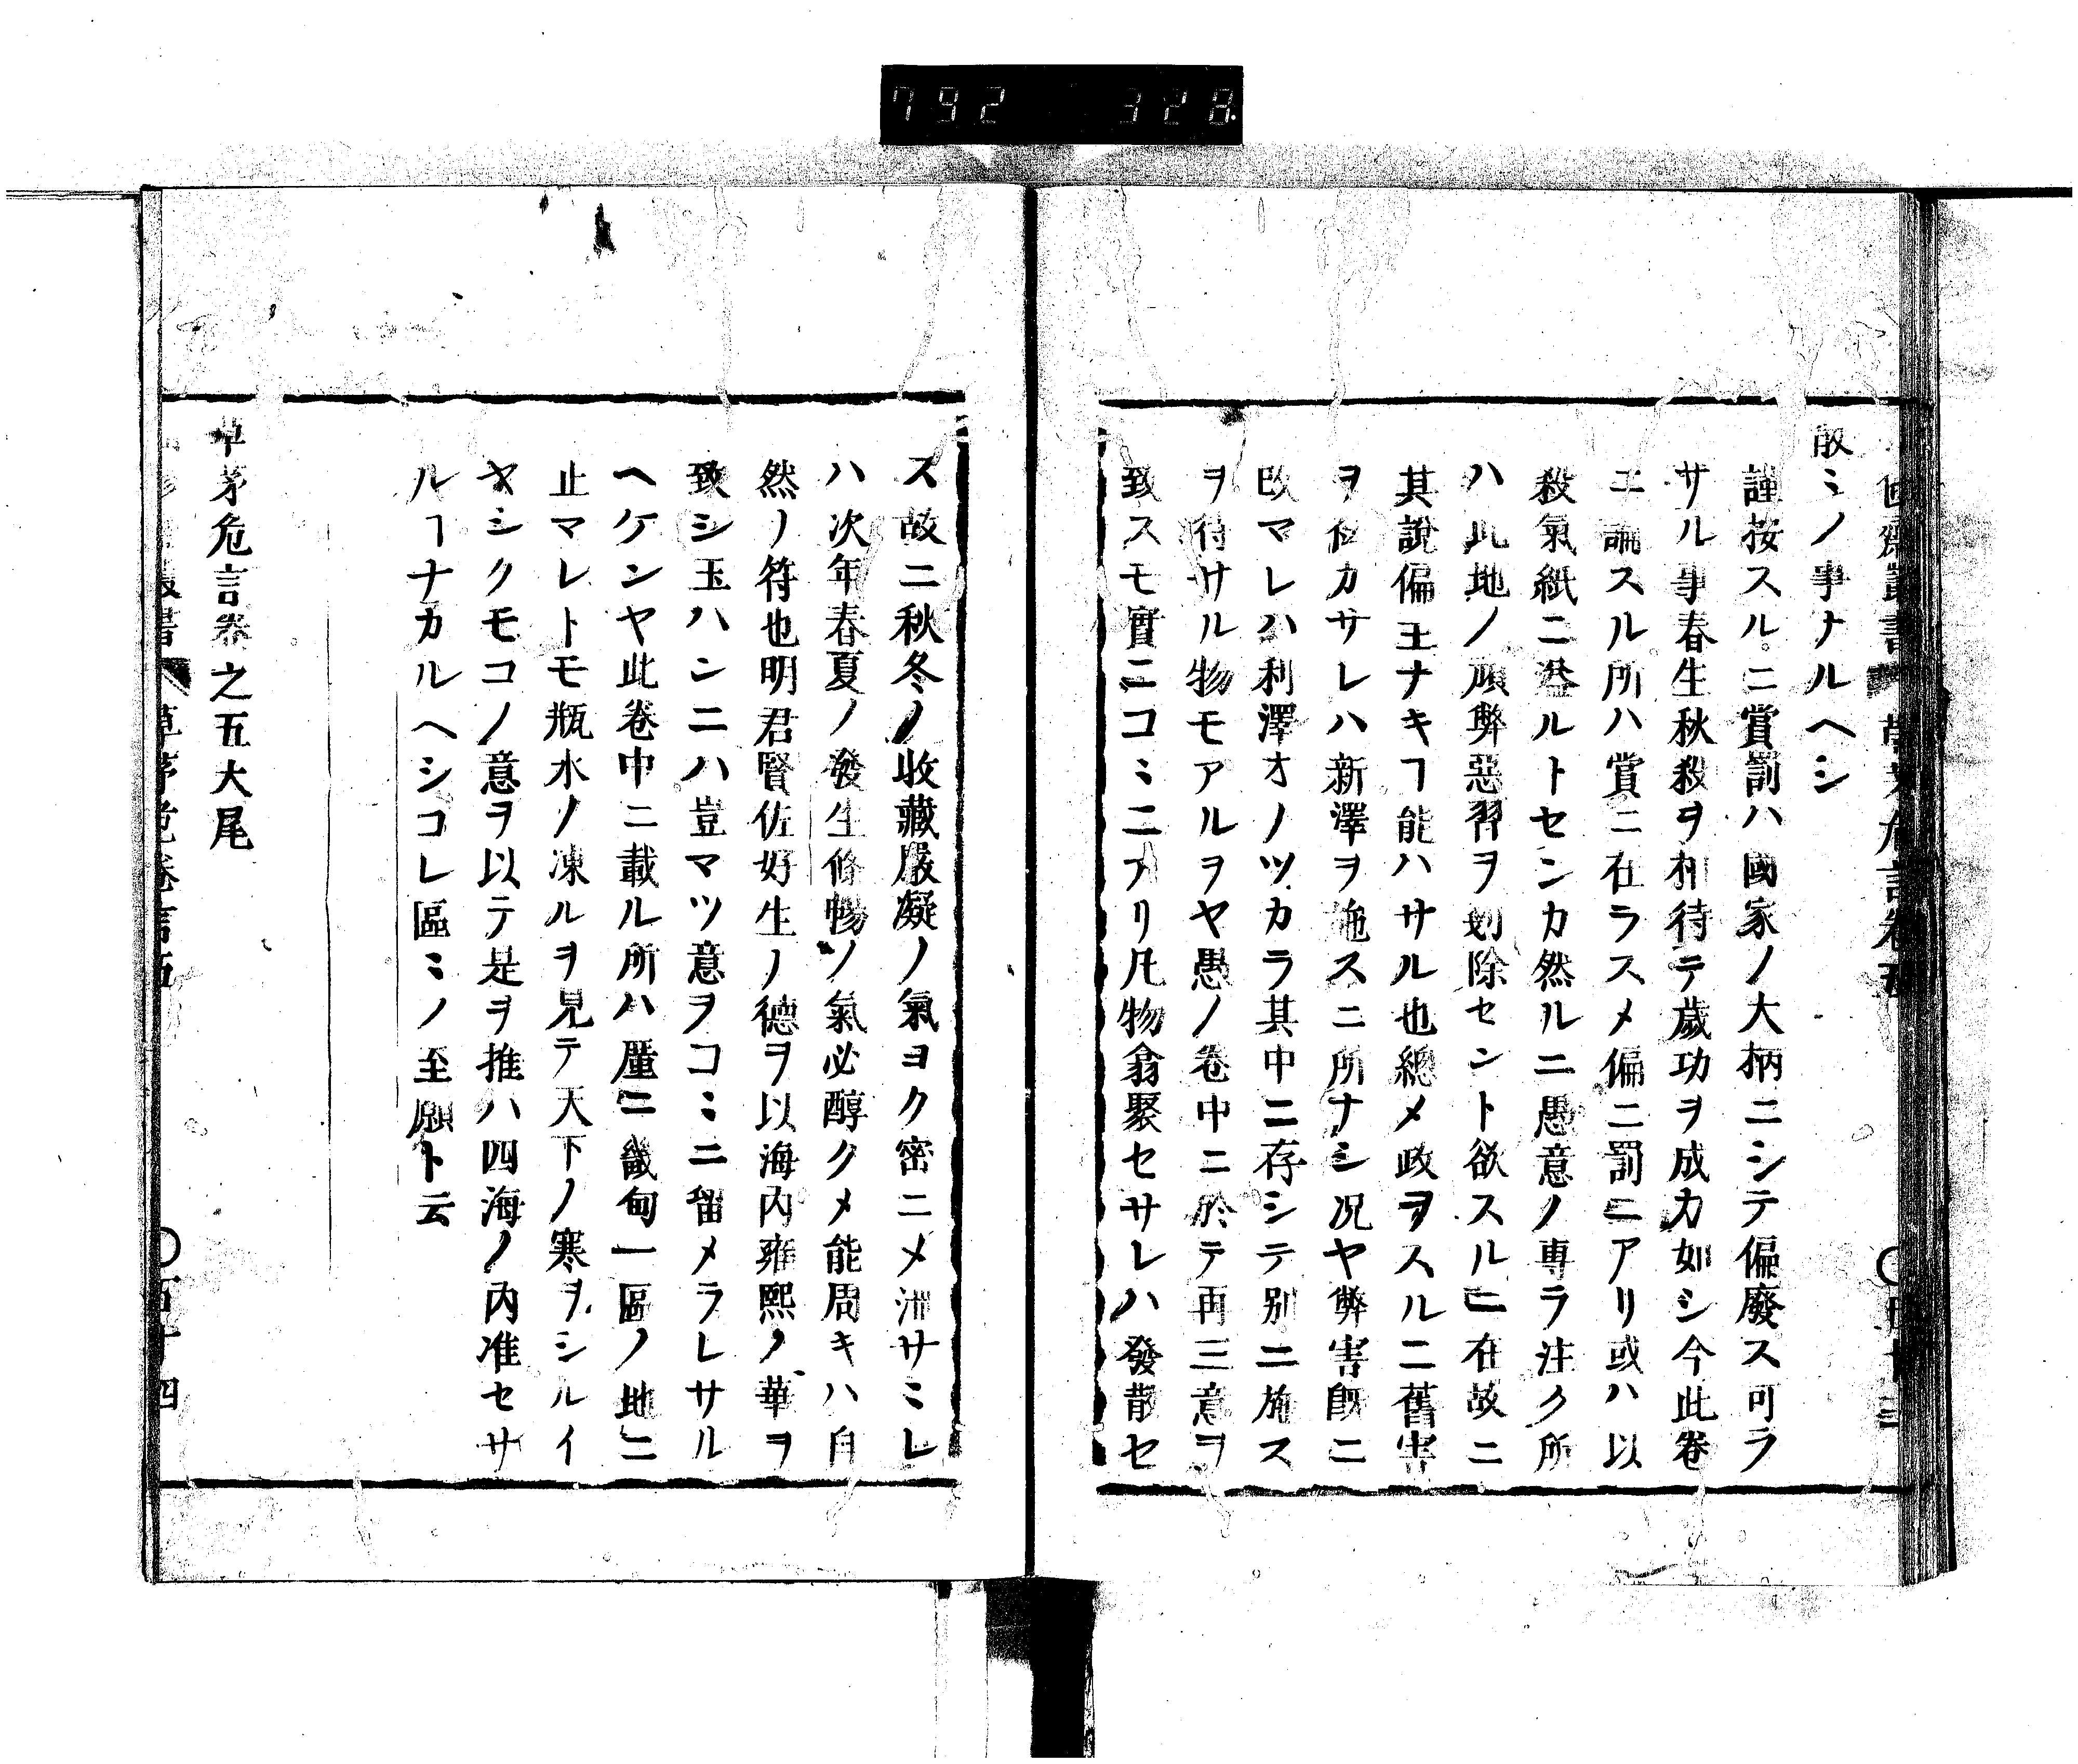 792 328
散ミノ事ナルヘシ
謹按スルニ賞罰ハ國家ノ大柄ニシテ偏廢ス可ラ
サル事春生秋殺ヲ相待テ歲功ヲ成カ如シ今此卷
ニ論スル所ハ賞ニ在ラスメ偏ニ罰ニアリ或ハ以
殺氣紙ニ溢ルトセンカ然ルニ愚意ノ専ラ注ク所
ハ此地ノ頑弊惡習ヲ剗除セント欲スルニ在故ニ
其說偏主ナキヿ能ハサル也總メ政ヲスルニ舊害
ヲ仆カサレハ新澤ヲ施スニ所ナシ況ヤ弊害既ニ
改マレハ利澤オノツカラ其中ニ存シテ別ニ施ス
ヲ待サル物モアルヲヤ愚ノ卷中ニ於テ再三意ヲ
致スモ實ニコヽニアリ凡物翕聚セサレハ發散セ
ス故ニ秋冬ノ收藏嚴凝ノ氣ヨク密ニメ洲サヽレ
ハ次年春夏ノ發生條暢ノ氣必醇クメ能周キハ自
然ノ符也明君賢佐好生ノ德ヲ以海內雍熙ノ華ヲ
致シ玉ハンニハ豈マツ意ヲコヽニ留メラレサル
ヘケンヤ此卷中ニ載ル所ハ厪ニ畿甸一區ノ地ニ
止マレトモ瓶水ノ凍ルヲ見テ天下ノ寒ヲシルイ
ヤシクモコノ意ヲ以テ是ヲ推ハ四海ノ內准セサ
ルヿナカルヘシコレ區ミノ至願ト云
草茅危言卷之五大尾